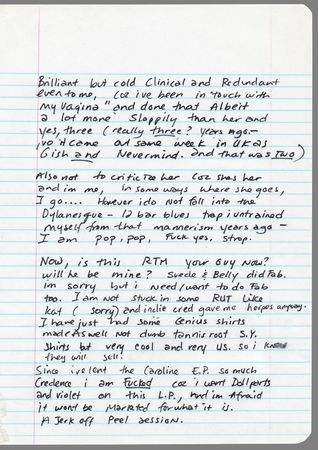 Brilliant but cold Clinical and Redundant
even to me, coz ive been in "touch with
my Vagina" and done that Albeit
a lot more Sloppily than her and
yes, three (really three? years ago -
yo it came out same week in UK as
Gish and Nevermind. and that was Two)
Also not to criticize her coz shes her
and im me, in some ways where she goes,
I go.... However i do Not fall into the
Dylanesque - 12 bar blues trap i untrained
myself from that mannerism years ago -
I am pop, pop, Fuck yes, Strop.
Now, is this RTM your Guy Now?
will he be mine? Suede & Belly did Fab.
im sorry but i need/want to do Fab
too. I am not stuck in some RUT Like
kat (sorry) and indie cred gave me herpes anyway.
I have just had some Genius shirts
made as well not dumb tannis root S.Y.
shirts but very cool and very US. so i know
they will sell.
Since ive lent the Caroline E.P. so much
Credence i am Fucked coz i want Dollparts
and violet on this L.P., And im Afraid
it wont be Marketed for what it is.
A Jerk off Peel session.